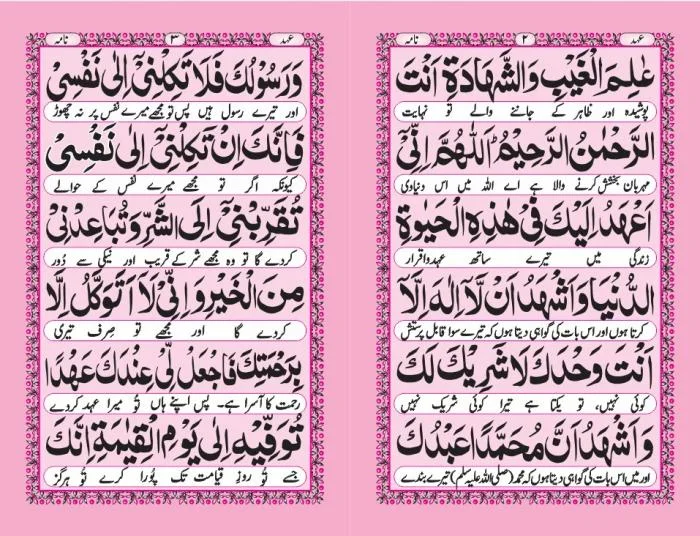 عہد ٢ نامہ
عٰلِمَ الْغَيْبِ وَالشَّهَادَةِ اَنْتَ
پوشیدہ اور ظاہر کے جاننے والے تو نہایت
الرَّحْمٰنُ الرَّحِيْمُ ؕ اَللّٰهُمَّ اِنِّيْٓ
مہربان بخشش کرنے والا ہے اے اللہ میں اس دنیاوی
اَعْهَدُ اِلَيْكَ فِيْ هٰذِهِ الْحَيٰوةِ
زندگی میں تیرے ساتھ عہد واقرار
الدُّنْيَا وَاَشْهَدُ اَنْ لَّآ اِلٰهَ اِلَّآ
کرتا ہوں اور اس بات کی گواہی دیتا ہوں کہ تیرے سوا قابل پرستش
اَنْتَ وَحْدَكَ لَا شَرِيْكَ لَكَ
کوئی نہیں، تو یکتا ہے تیرا کوئی شریک نہیں
وَاَشْهَدُ اَنَّ مُحَمَّدًا عَبْدُكَ
اور میں اس بات کی گواہی دیتا ہوں کہ محمد (صلی اللہ علیہ سلم) تیرے بندے
عہد ٣ نامہ
وَرَسُوْلُكَ فَلَا تَكِلْنِيْٓ اِلٰى نَفْسِيْ
اور تیرے رسول ہیں پس تو مجھے میرے نفس پر نہ چھوڑ
فَاِنَّكَ اِنْ تَكِلْنِيْٓ اِلٰى نَفْسِيْ
کیونکہ اگر تو مجھے میرے نفس کے حوالے
تُقَرِّبْنِيْٓ اِلَى الشَّرِّ وَتُبَاعِدْنِيْ
کردے گا تو وہ مجھے شر کے قریب اور نیکی سے دُور
مِنَ الْخَيْرِ وَاِنِّيْ لَآ اَتَوَكَّلُ اِلَّا
کردے گا اور مجھے تو صِرف تیری
بِرَحْمَتِكَ فَاجْعَلْ لِّيْ عِنْدَكَ عَهْدًا
رحمت کا آسرا ہے۔ پس اپنے ہاں تُو میرا عہد کردے
تُوَفِّيْهِ اِلٰى يَوْمِ الْقِيٰمَةِ اِنَّكَ
جسے تو روزِ قیامت تک پُورا کرے تُو ہرگز